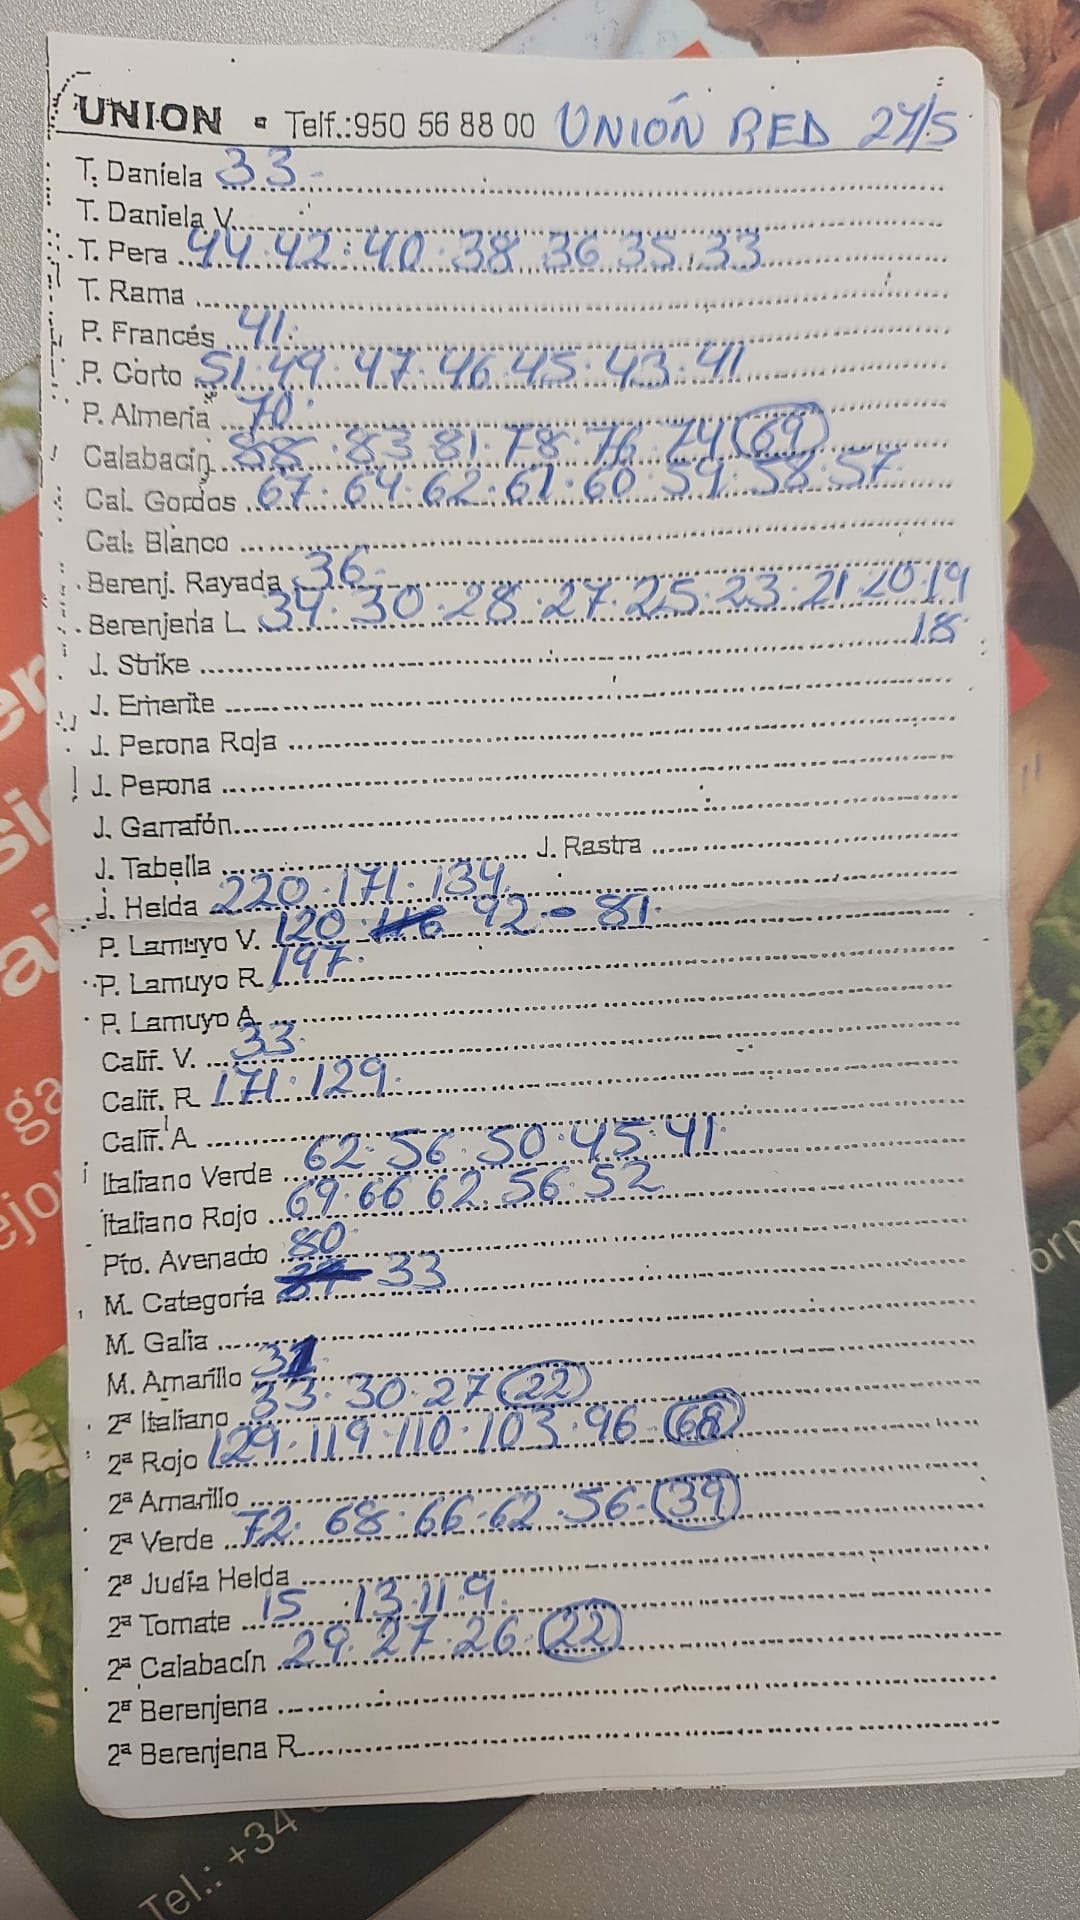 UNION • Telf.:950 56 88 00 UNIÓN RED 27/5
T. Daniela 33
T. Daniela V.
T. Pera 44 42 40 38 36 35 33
T. Rama
P. Francés 41
P. Corto 51 49 47 46 45 43 41
P. Almeria 70
Calabacin 88 83 81 78 76 74 69
Cal. Gordos 67 64 62 61 60 59 58 57
Cal. Blanco
Berenj. Rayada 36
Berenjena L. 34 30 28 27 25 23 21 20 19
18
J. Strike
J. Emerite
J. Perona Roja
J. Perona
J. Garrafón
J. Tabella J. Rastra
J. Helda 220 171 134
P. Lamuyo V. 120 116 92 - 81
P. Lamuyo R. 197
P. Lamuyo A.
Calif. V. 33
Calif. R. 171 129
Calif. A.
Italiano Verde 62 56 50 45 41
Italiano Rojo 69 66 62 56 52
Pto. Avenado 80
M. Categoría 33
M. Galia
M. Amarillo
2ª Italiano 33 30 27 22
2ª Rojo 129 119 110 103 96 68
2ª Amarillo
2ª Verde 72 68 66 62 56 39
2ª Judía Helda
2ª Tomate 15 13 11 9
2ª Calabacín 29 27 26 22
2ª Berenjena
2ª Berenjena R.
Tel.: +34